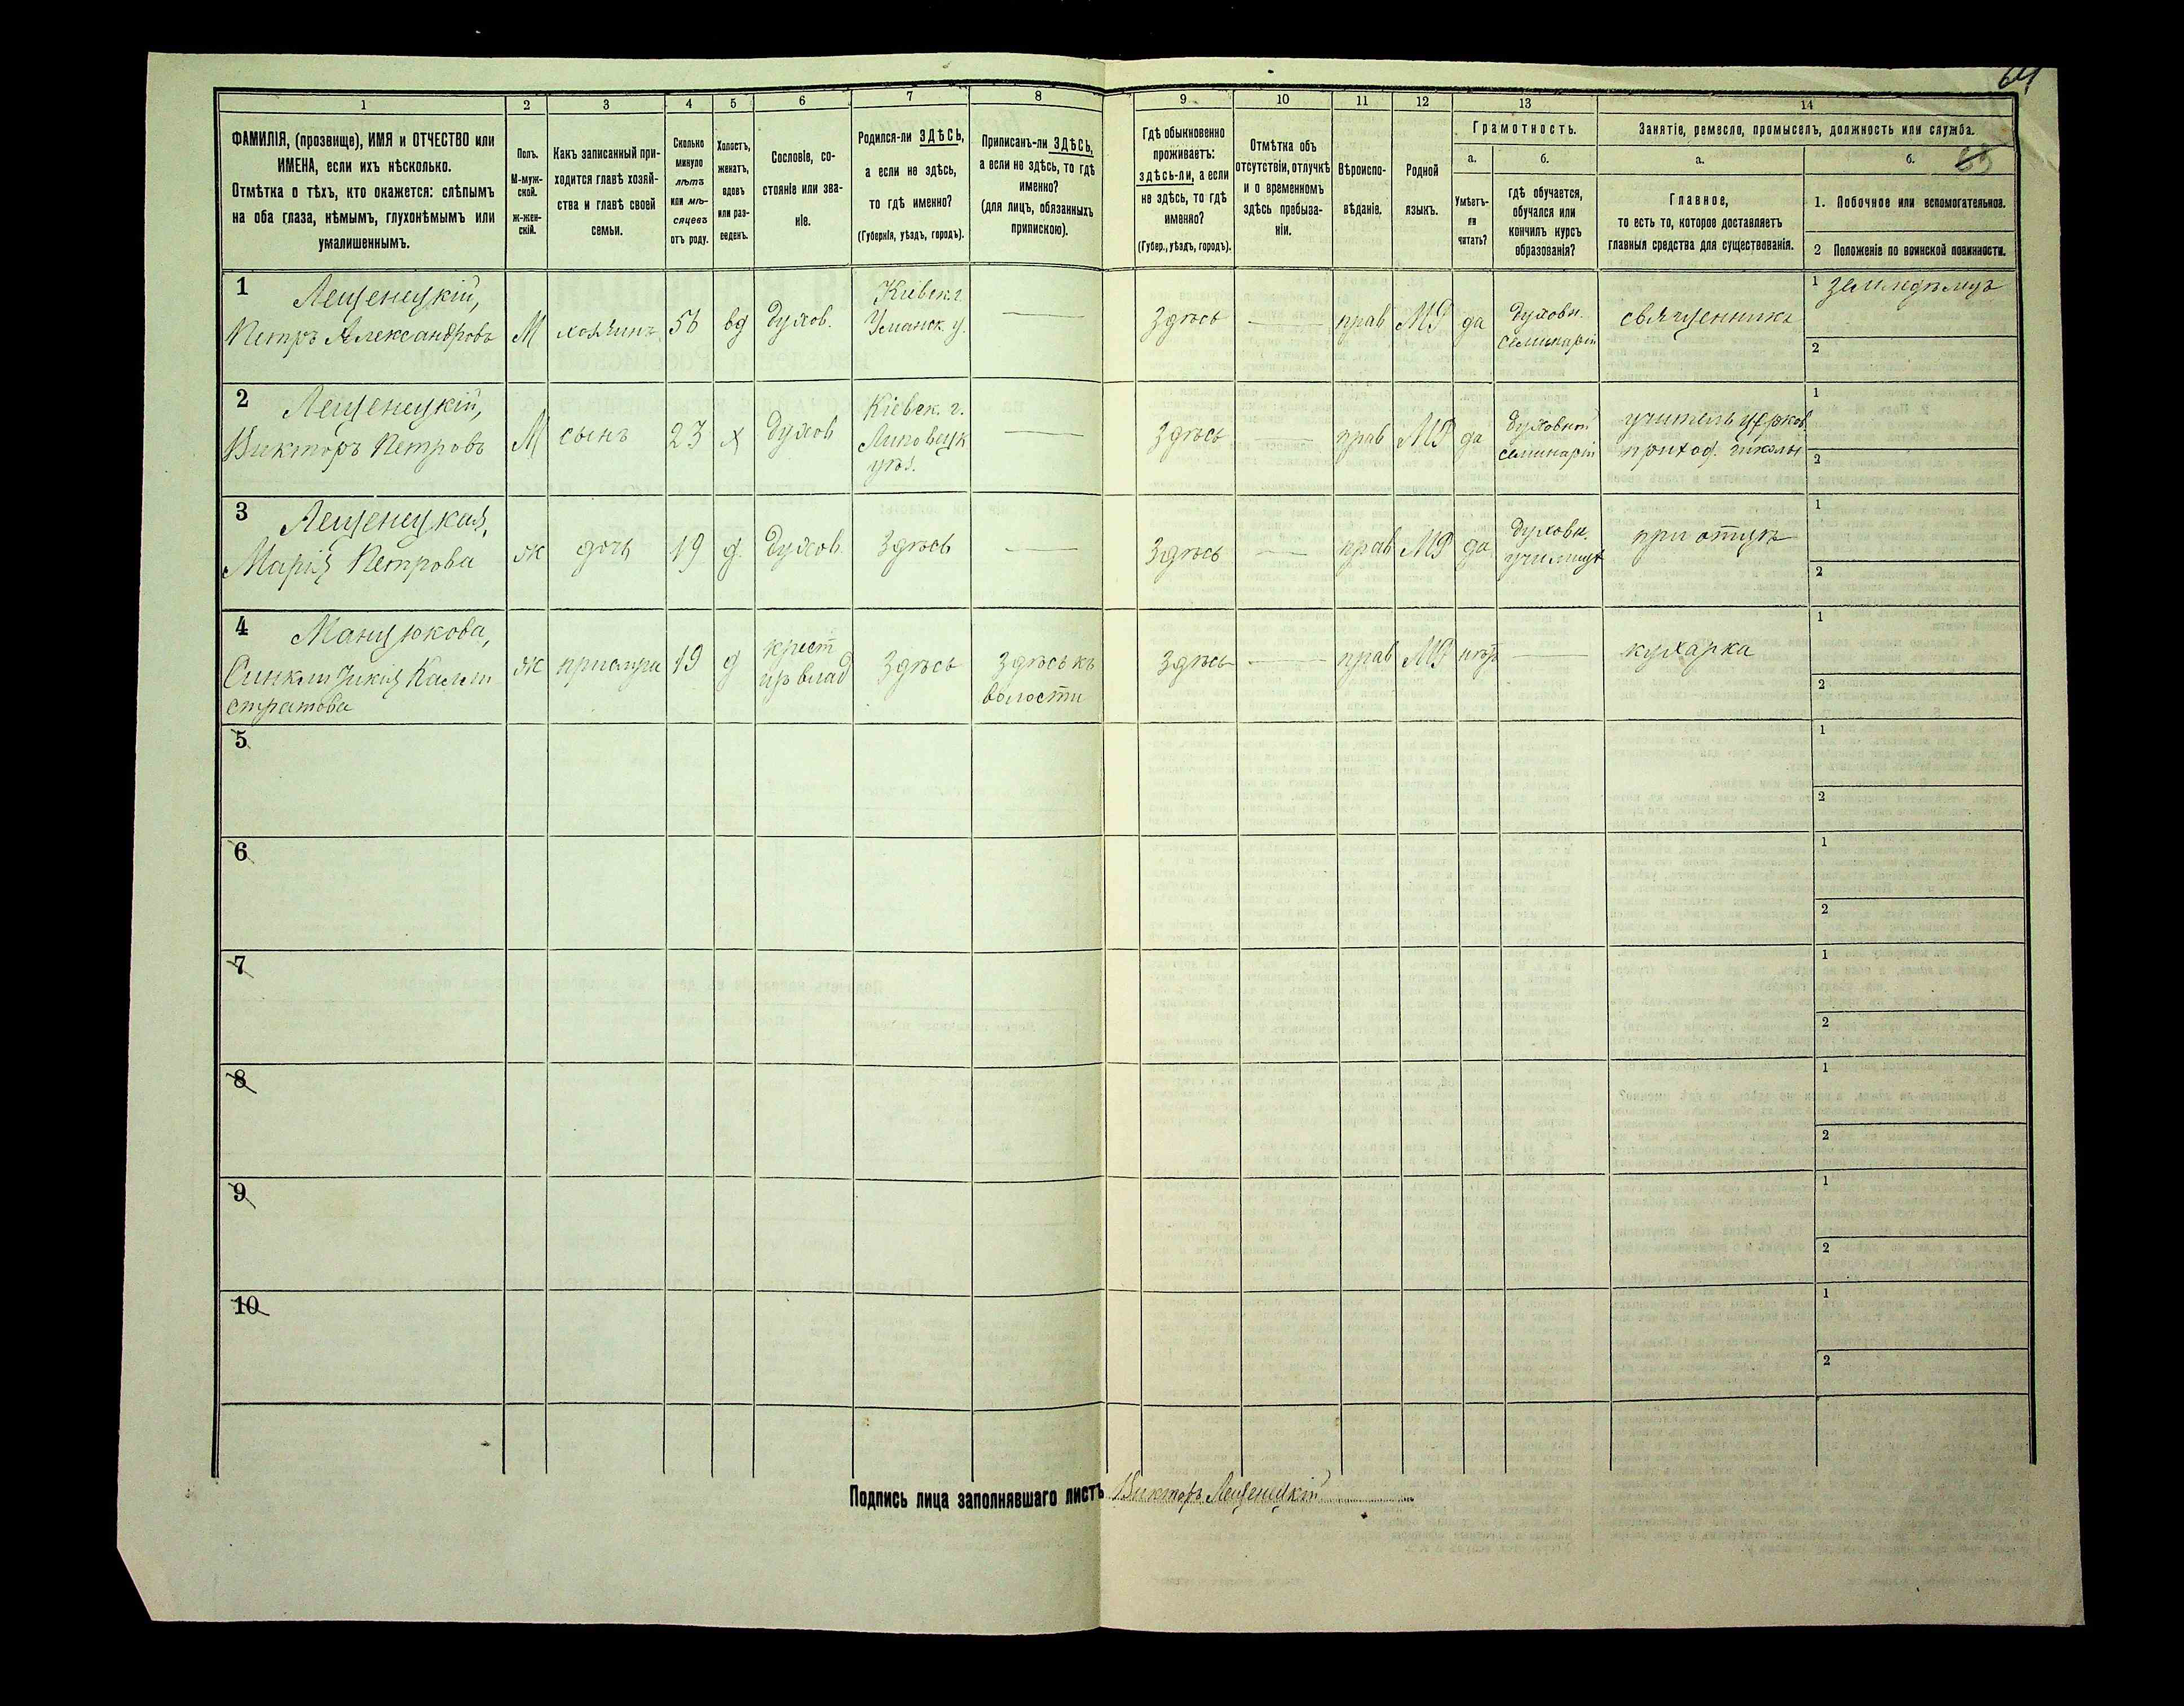 64
1 2 3 4 5 6 7 8 9 10 11 12 13 14
ФАМИЛІЯ, (прозвище), ИМЯ и ОТЧЕСТВО или
ИМЕНА, если ихъ нѣсколько.
Отмѣтка о тѣхъ, кто окажется: слѣпымъ
на оба глаза, нѣмымъ, глухонѣмымъ или
умалишеннымъ.
Полъ.
М-муж-
ской.
ж-жен-
скій.
Какъ записанный при-
ходится главѣ хозяй-
ства и главѣ своей
семьи.
Сколько
минуло
лѣтъ
или мѣ-
сяцевъ
отъ роду.
Холостъ,
женатъ,
вдовъ
или раз-
веденъ.
Сословіе, со-
стояніе или зва-
ніе.
Родился-ли ЗДѢСЬ,
а если не здѣсь,
то гдѣ именно?
(Губернія, уѣздъ, городъ).
Приписанъ-ли ЗДѢСЬ,
а если не здѣсь, то гдѣ
именно?
(для лицъ, обязанныхъ
припискою).
Гдѣ обыкновенно
проживаетъ:
здѣсь-ли, а если
не здѣсь, то гдѣ
именно?
(Губер., уѣздъ, городъ).
Отмѣтка объ
отсутствіи, отлучкѣ
и о временномъ
здѣсь пребыва-
ніи.
Вѣроиспо-
вѣданіе.
Родной
языкъ.
Грамотность.
а.
Умѣетъ-
ли
читать?
б.
гдѣ обучается,
обучался или
кончилъ курсъ
образованія?
Занятіе, ремесло, промыселъ, должность или служба.
а.
Главное,
то есть то, которое доставляетъ
главныя средства для существованія.
б.
65
1. Побочное или вспомогательное.
2 Положеніе по воинской повинности.
1 Лещенецкій,
Петръ Александровъ
М
хозяинъ
56
вд
духов.
Кіевск. г.
Уманск. у.
Здѣсь
прав
МР
да
Духовн.
семинаріи
священникъ
1 земледѣлецъ
2
2 Лещенецкій,
Викторъ Петровъ
М
сынъ
23
х
духов
Кіевск. г.
Липовецк
уѣз.
Здѣсь
прав
МР
да
Духовной
семинаріи
учитель церков
приход. школы
1
2
3 Лещенецкая,
Марія Петрова
ж
дочь
19
д.
духов.
Здѣсь
Здѣсь
прав
МР
да
Духовн.
училищ
при отцѣ
1
2
4 Манцюкова,
Синклитикія Кали
стратова
ж
прислуга
19
д
крест
изъ влад
Здѣсь
Здѣсь къ
волости
Здѣсь
прав
МР
нѣтъ
кухарка
1
2
5
1
2
6
1
2
7
1
2
8
1
2
9
1
2
10
1
2
Подпись лица заполнявшаго листъ Викторъ Лещенецкій